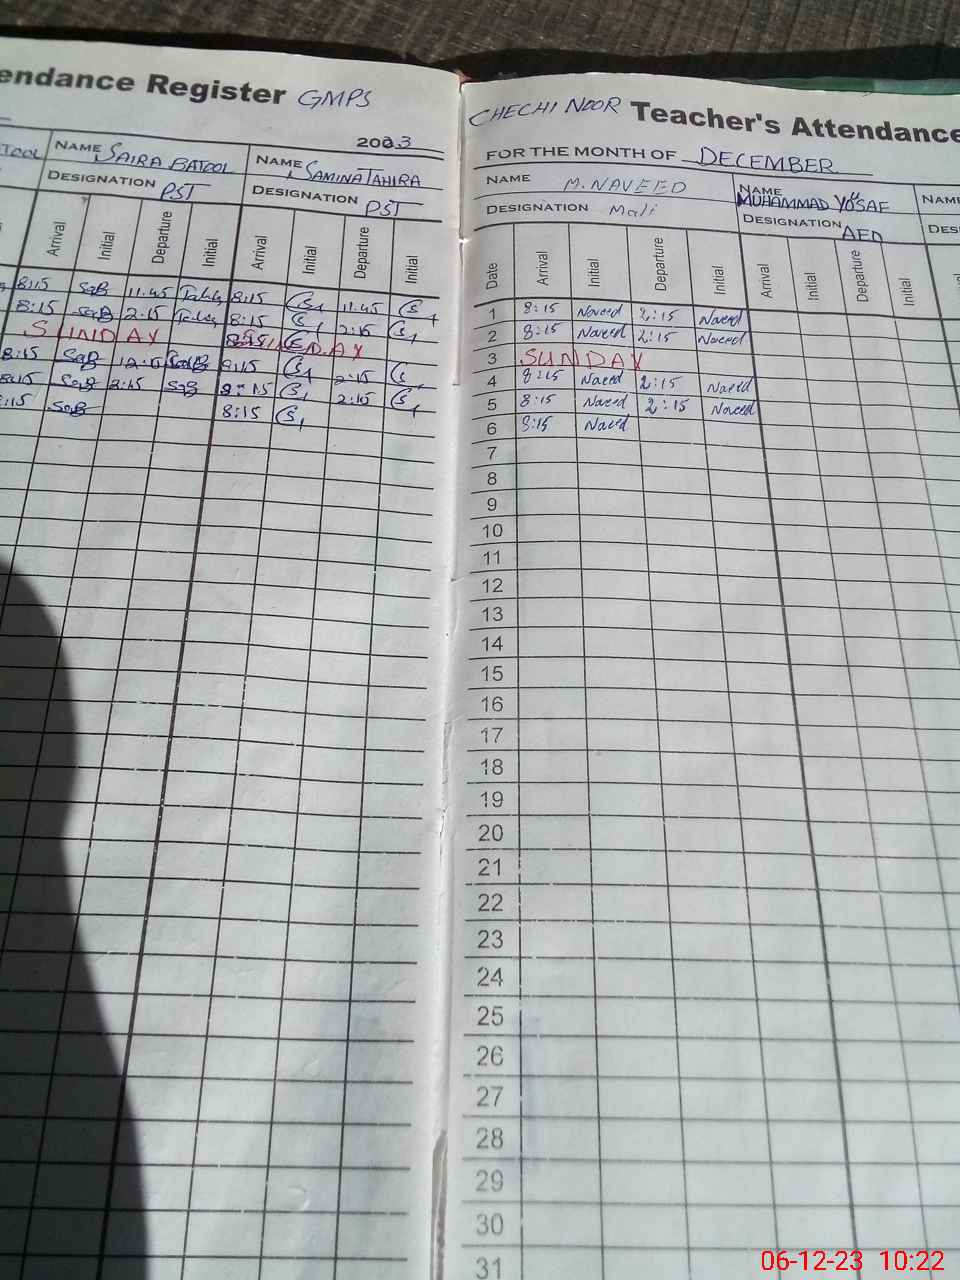 endance Register GMPS
2023
TOOL NAME SAIRA BATOOL NAME SAMINA TAHIRA
DESIGNATION PST DESIGNATION PST
Arrival Initial Departure Initial Arrival Initial Departure Initial
8:15 SaB 11.45 8:15 11.45
8:15 SaB 2:15 8:15 2:15
SUNDAY SUNDAY
8:15 SaB 8:15 2:15
8:15 SaB 2:15 SaB 8:15 2:15
8:15 SaB 8:15
CHECHI NOOR Teacher's Attendance
FOR THE MONTH OF DECEMBER
NAME M.NAVEED NAME MUHAMMAD YOUSAF NAM
DESIGNATION Mali DESIGNATION AEO DES
Date Arrival Initial Departure Initial Arrival Initial Departure Initial
1 8:15 Naveed 2:15 Naveed
2 8:15 Naveed 2:15 Naveed
3 SUNDAY
4 8:15 Naveed 2:15 Naveed
5 8:15 Naveed 2:15 Naveed
6 8:15 Naveed
7
8
9
10
11
12
13
14
15
16
17
18
19
20
21
22
23
24
25
26
27
28
29
30
31
06-12-23 10:22